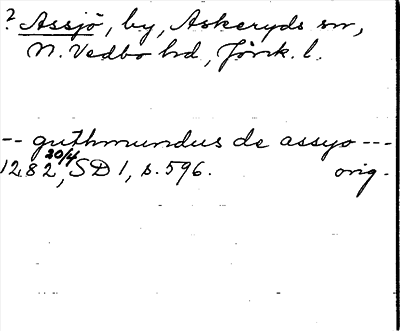 ? Assjö, by, Askeryds sn,
N. Vedbo hd, Jönk. l.
-- guthmundus de assyo ---
1282 20/4, SD 1, s. 596. orig.